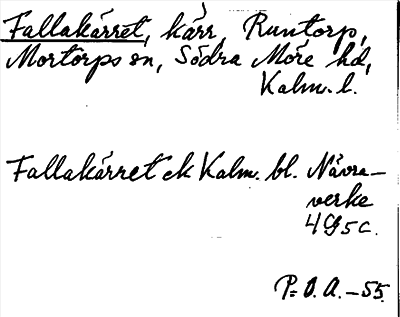 Fallakärret, kärr, Runtorp,
Mortorps sn, Södra Möre hd,
Kalm. l.
Fallakärret ek Kalm. bl. Nävra-
verke
4G5c.
P: O. A. - 55.